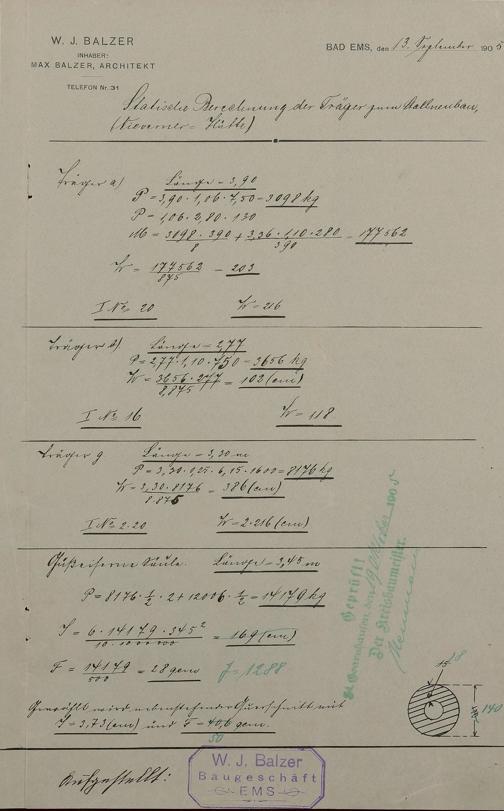 W. J. BALZER
INHABER:
MAX BALZER, ARCHITEKT
TELEFON Nr. 31
BAD EMS, den 13. September 1905
Statische Berechnung der Träger zum Hallenbau,
(Nieverner-Hütte)
Träger a) Länge = 3,90
P = 3,90 · 1,06 · 7,50 = 3098 kg
P = 1,06 · 2,80 · 130
M = 3098 · 390 / 8 + 3,36 · 1,10 · 280 / 390 = 177562
W = 177562 / 875 = 203
I No. 20 W = 216
Träger b) Länge = 2,77
P = 2,77 · 1,10 · 750 = 3656 kg
W = 3656 · 277 / 8,875 = 102 (cm)
I No. 16 W = 118
Träger g Länge = 3,30 m
P = 3,30 · 0,25 · 6,15 · 1600 = 8176 kg
W = 3,30 · 8176 / 8.875 = 386 (cm)
I No. 2.20 W = 2·216 (cm)
Gußeiserne Säule. Länge = 3,45 m
P = 8176 · ½ · 2 + 12006 · ½ = 14179 kg
J = 6 · 14179 · 345² / 10.000000 = 169 (cm)
F = 14179 / 500 = 28 qcm J = 1288
Gewählt wird nebenstehender Querschnitt mit
J = 2,73 (cm) und F = 40,6 qcm.
50
Geprüft!
Oktober 1905
Der Kreisbaumeister.
15
18
140
Aufgestellt:
W. J. Balzer
Baugeschäft
EMS